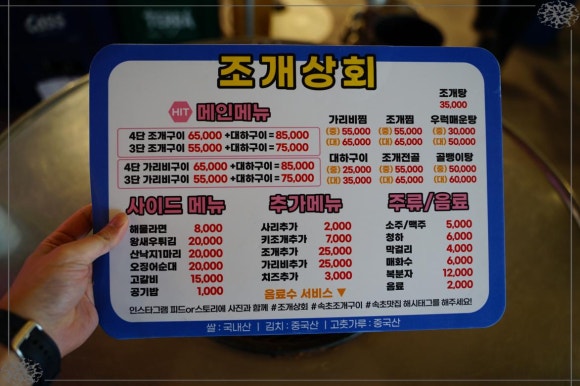 조개상회
HIT 메인메뉴
4단 조개구이 65,000 +대하구이= 85,000
3단 조개구이 55,000 +대하구이= 75,000
4단 가리비구이 65,000 +대하구이= 85,000
3단 가리비구이 55,000 +대하구이= 75,000
조개탕
35,000
가리비찜
(중) 55,000
(대) 65,000
조개찜
(중) 55,000
(대) 65,000
우럭매운탕
(중) 30,000
(대) 50,000
대하구이
(중) 25,000
(대) 35,000
조개전골
(중) 55,000
(대) 65,000
골뱅이탕
(중) 50,000
(대) 60,000
사이드 메뉴
해물라면 8,000
왕새우튀김 20,000
산낙지1마리 20,000
오징어순대 20,000
고갈비 15,000
공기밥 1,000
추가메뉴
사리추가 2,000
키조개추가 7,000
조개추가 25,000
가리비추가 25,000
치즈추가 3,000
주류/음료
소주/맥주 5,000
청하 6,000
막걸리 4,000
매화수 6,000
복분자 12,000
음료 2,000
음료수 서비스 ▼
인스타그램 피드or스토리에 사진과 함께 #조개상회 #속초조개구이 #속초맛집 해시태그를 해주세요!
쌀 : 국내산 | 김치 : 중국산 | 고춧가루 : 중국산